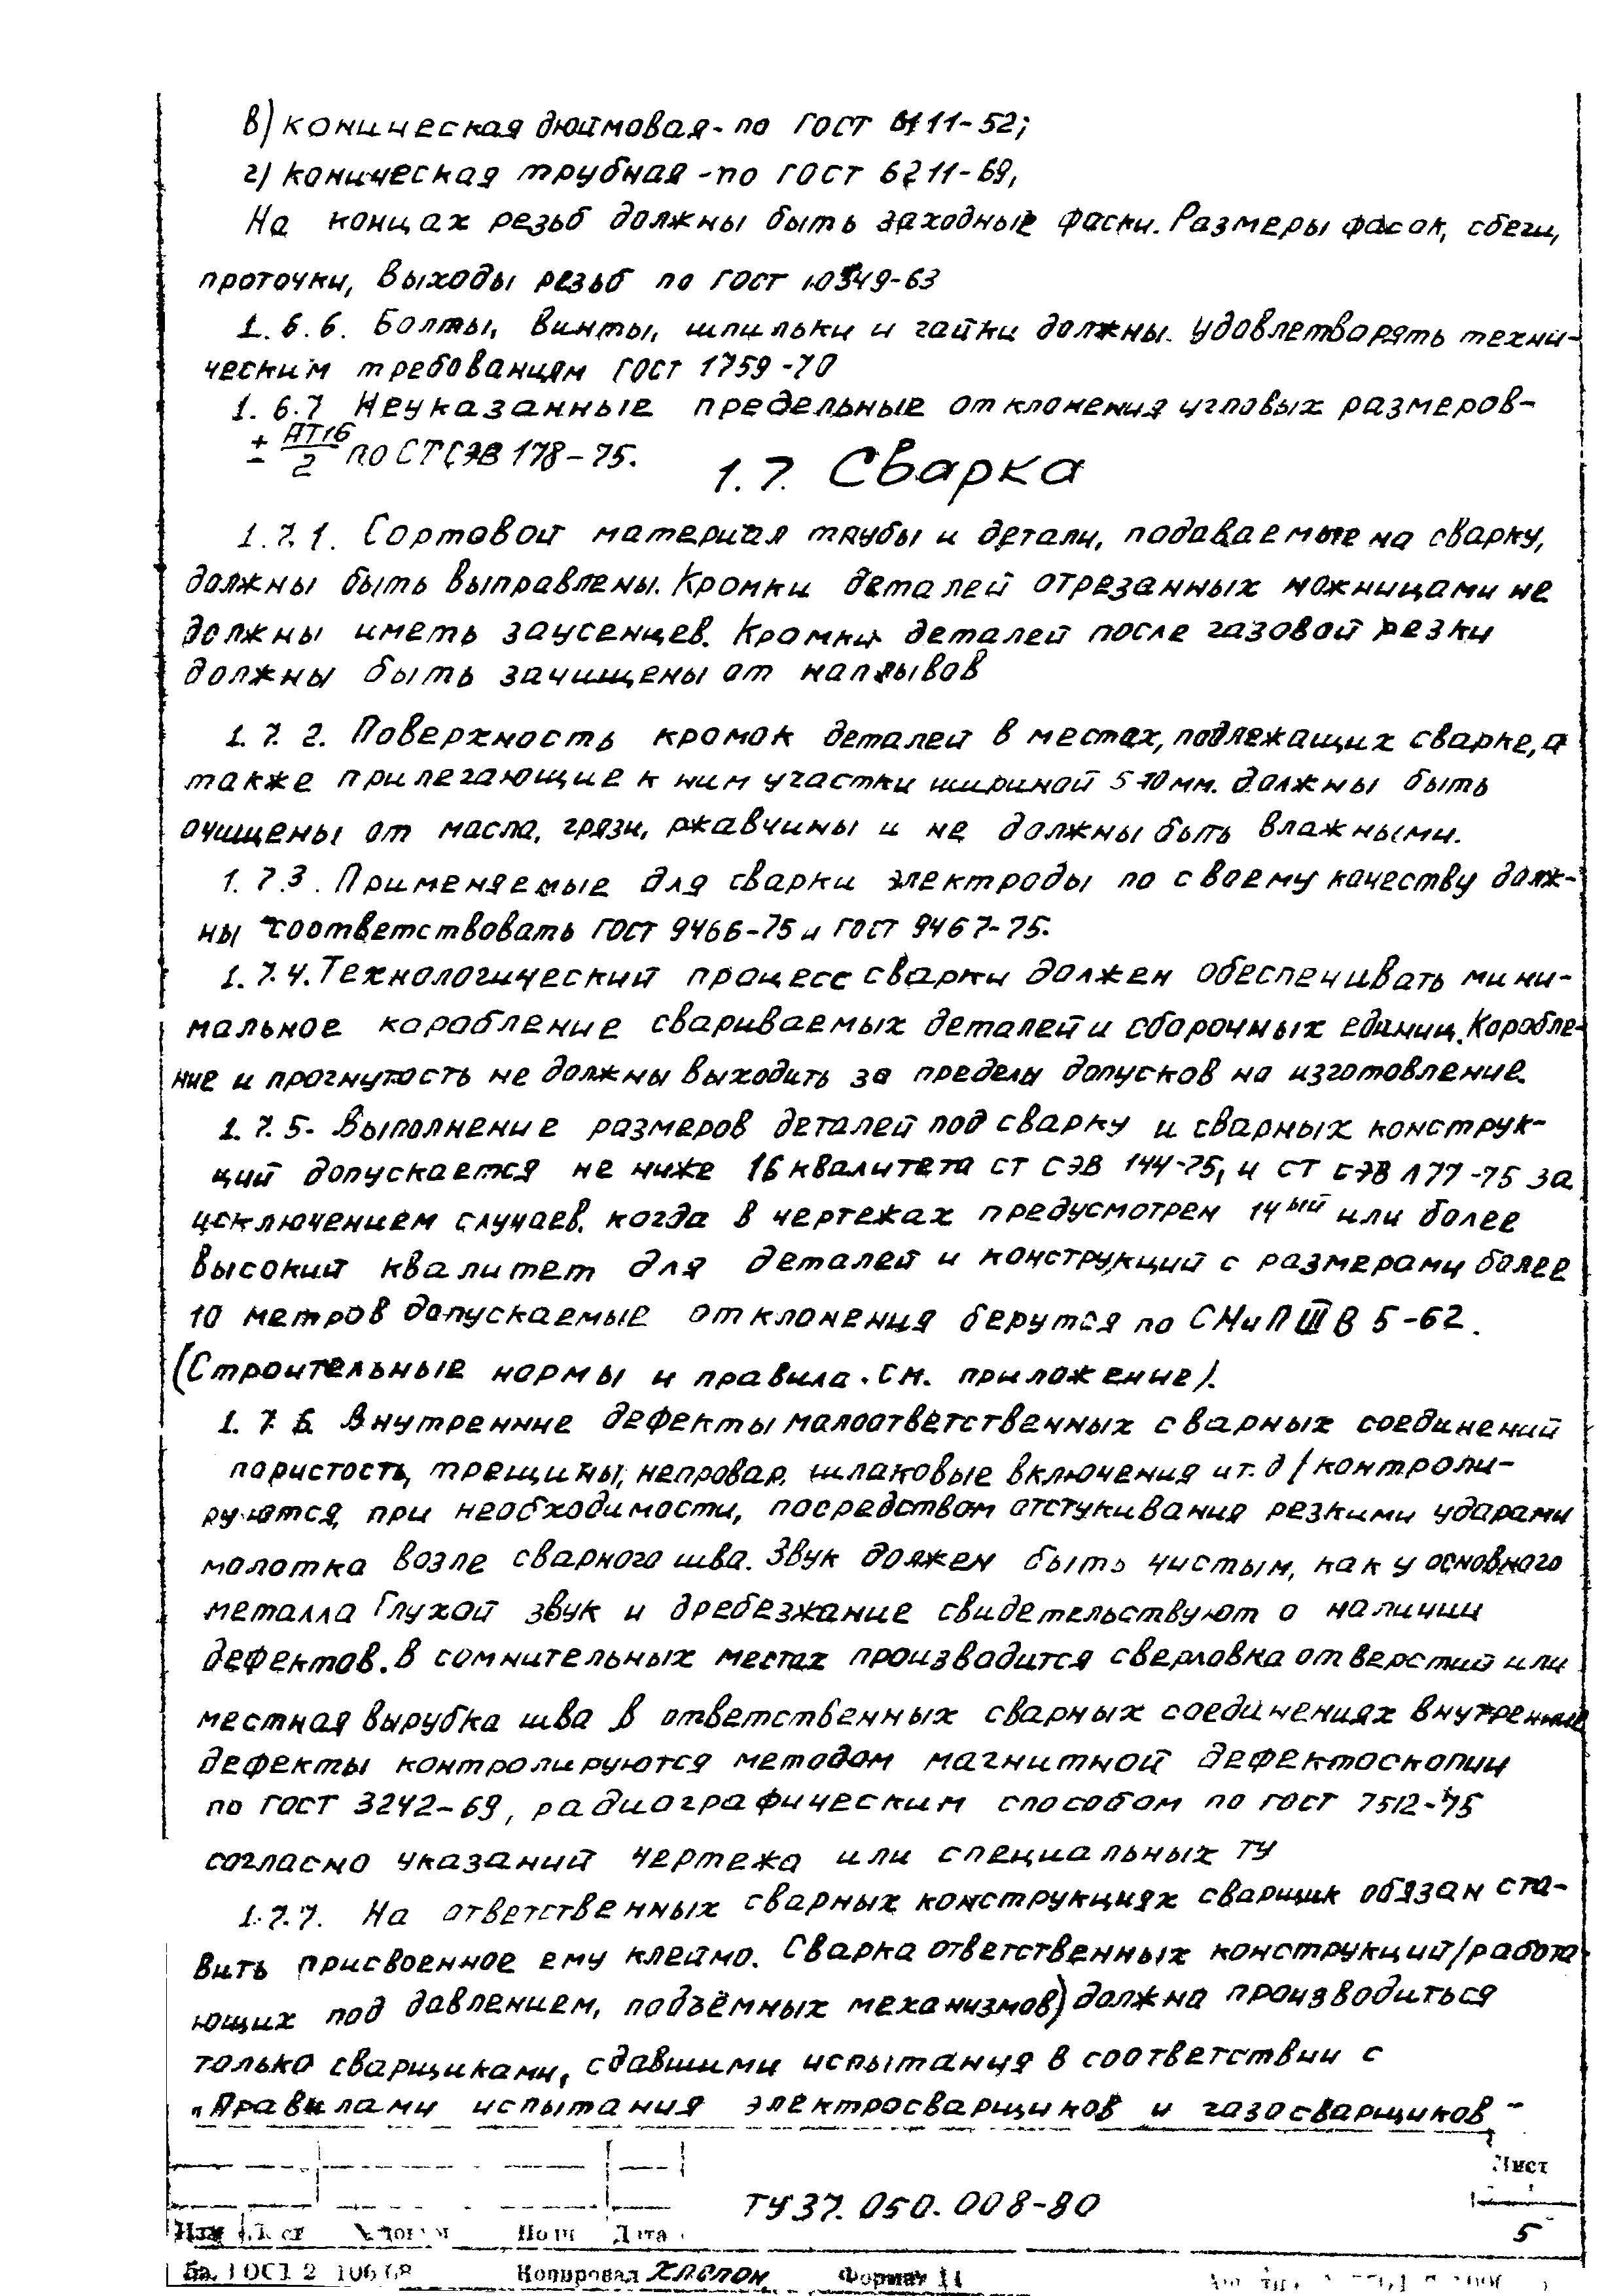 в) коническая дюймовая - по ГОСТ 6111-52;
г) коническая трубная - по ГОСТ 6211-69,
На концах резьб должны быть заходные фаски. Размеры фасок, сбеги,
проточки, выходы резьб по ГОСТ 10549-63
1.6.6. Болты, винты, шпильки и гайки должны удовлетворять техни-
ческим требованиям ГОСТ 1759-70
1.6.7 Неуказанные предельные отклонения угловых размеров-
± АТ16/2 по СТ СЭВ 178-75.
1.7. Сварка
1.7.1. Сортовой материал трубы и детали, подаваемые на сварку,
должны быть выправлены. Кромки деталей отрезанных ножницами не
должны иметь заусенцев. Кромки деталей после газовой резки
должны быть зачищены от наплывов
1.7.2. Поверхность кромок деталей в местах, подлежащих сварке, а
также прилегающие к ним участки шириной 5-10мм. должны быть
очищены от масла, грязи, ржавчины и не должны быть влажными.
1.7.3. Применяемые для сварки электроды по своему качеству долж-
ны соответствовать ГОСТ 9466-75 и ГОСТ 9467-75.
1.7.4. Технологический процесс сварки должен обеспечивать мини-
мальное коробление свариваемых деталей и сборочных единиц. Коробле-
ние и прогнутость не должны выходить за пределы допусков на изготовление.
1.7.5. Выполнение размеров деталей под сварку и сварных конструк-
ций допускается не ниже 16 квалитета ст СЭВ 144-75, и СТ СЭВ 177-75 за
исключением случаев, когда в чертежах предусмотрен 14ый или более
высокий квалитет для деталей и конструкций с размерами более
10 метров допускаемые отклонения берутся по СНиП III В 5-62.
(Строительные нормы и правила. См. приложение).
1.7.6. Внутренние дефекты малоответственных сварных соединений
пористость, трещины, непровар, шлаковые включения и т.д/контроли-
руются, при необходимости, посредством отстукивания резкими ударами
молотка возле сварного шва. Звук должен быть чистым, как у основного
металла Глухой звук и дребезжание свидетельствуют о наличии
дефектов. В сомнительных местах производится сверловка отверстий или
местная вырубка шва В ответственных сварных соединениях внутренние
дефекты контролируются методом магнитной дефектоскопии
по ГОСТ 3242-69, радиографическим способом по ГОСТ 7512-75
согласно указаний чертежа или специальных ТУ
1.7.7. На ответственных сварных конструкциях сварщик обязан ста-
вить присвоенное ему клеймо. Сварка ответственных конструкций/работа-
ющих под давлением, подъёмных механизмов) должна производиться
только сварщиками, сдавшими испытания в соответствии с
„Правилами испытания электросварщиков и газосварщиков-
Лист
ТУ 37.050.008-80
5
Изм Лист № докум Подп Дата
ГОСТ 2 106 68 Копировал Формат 11